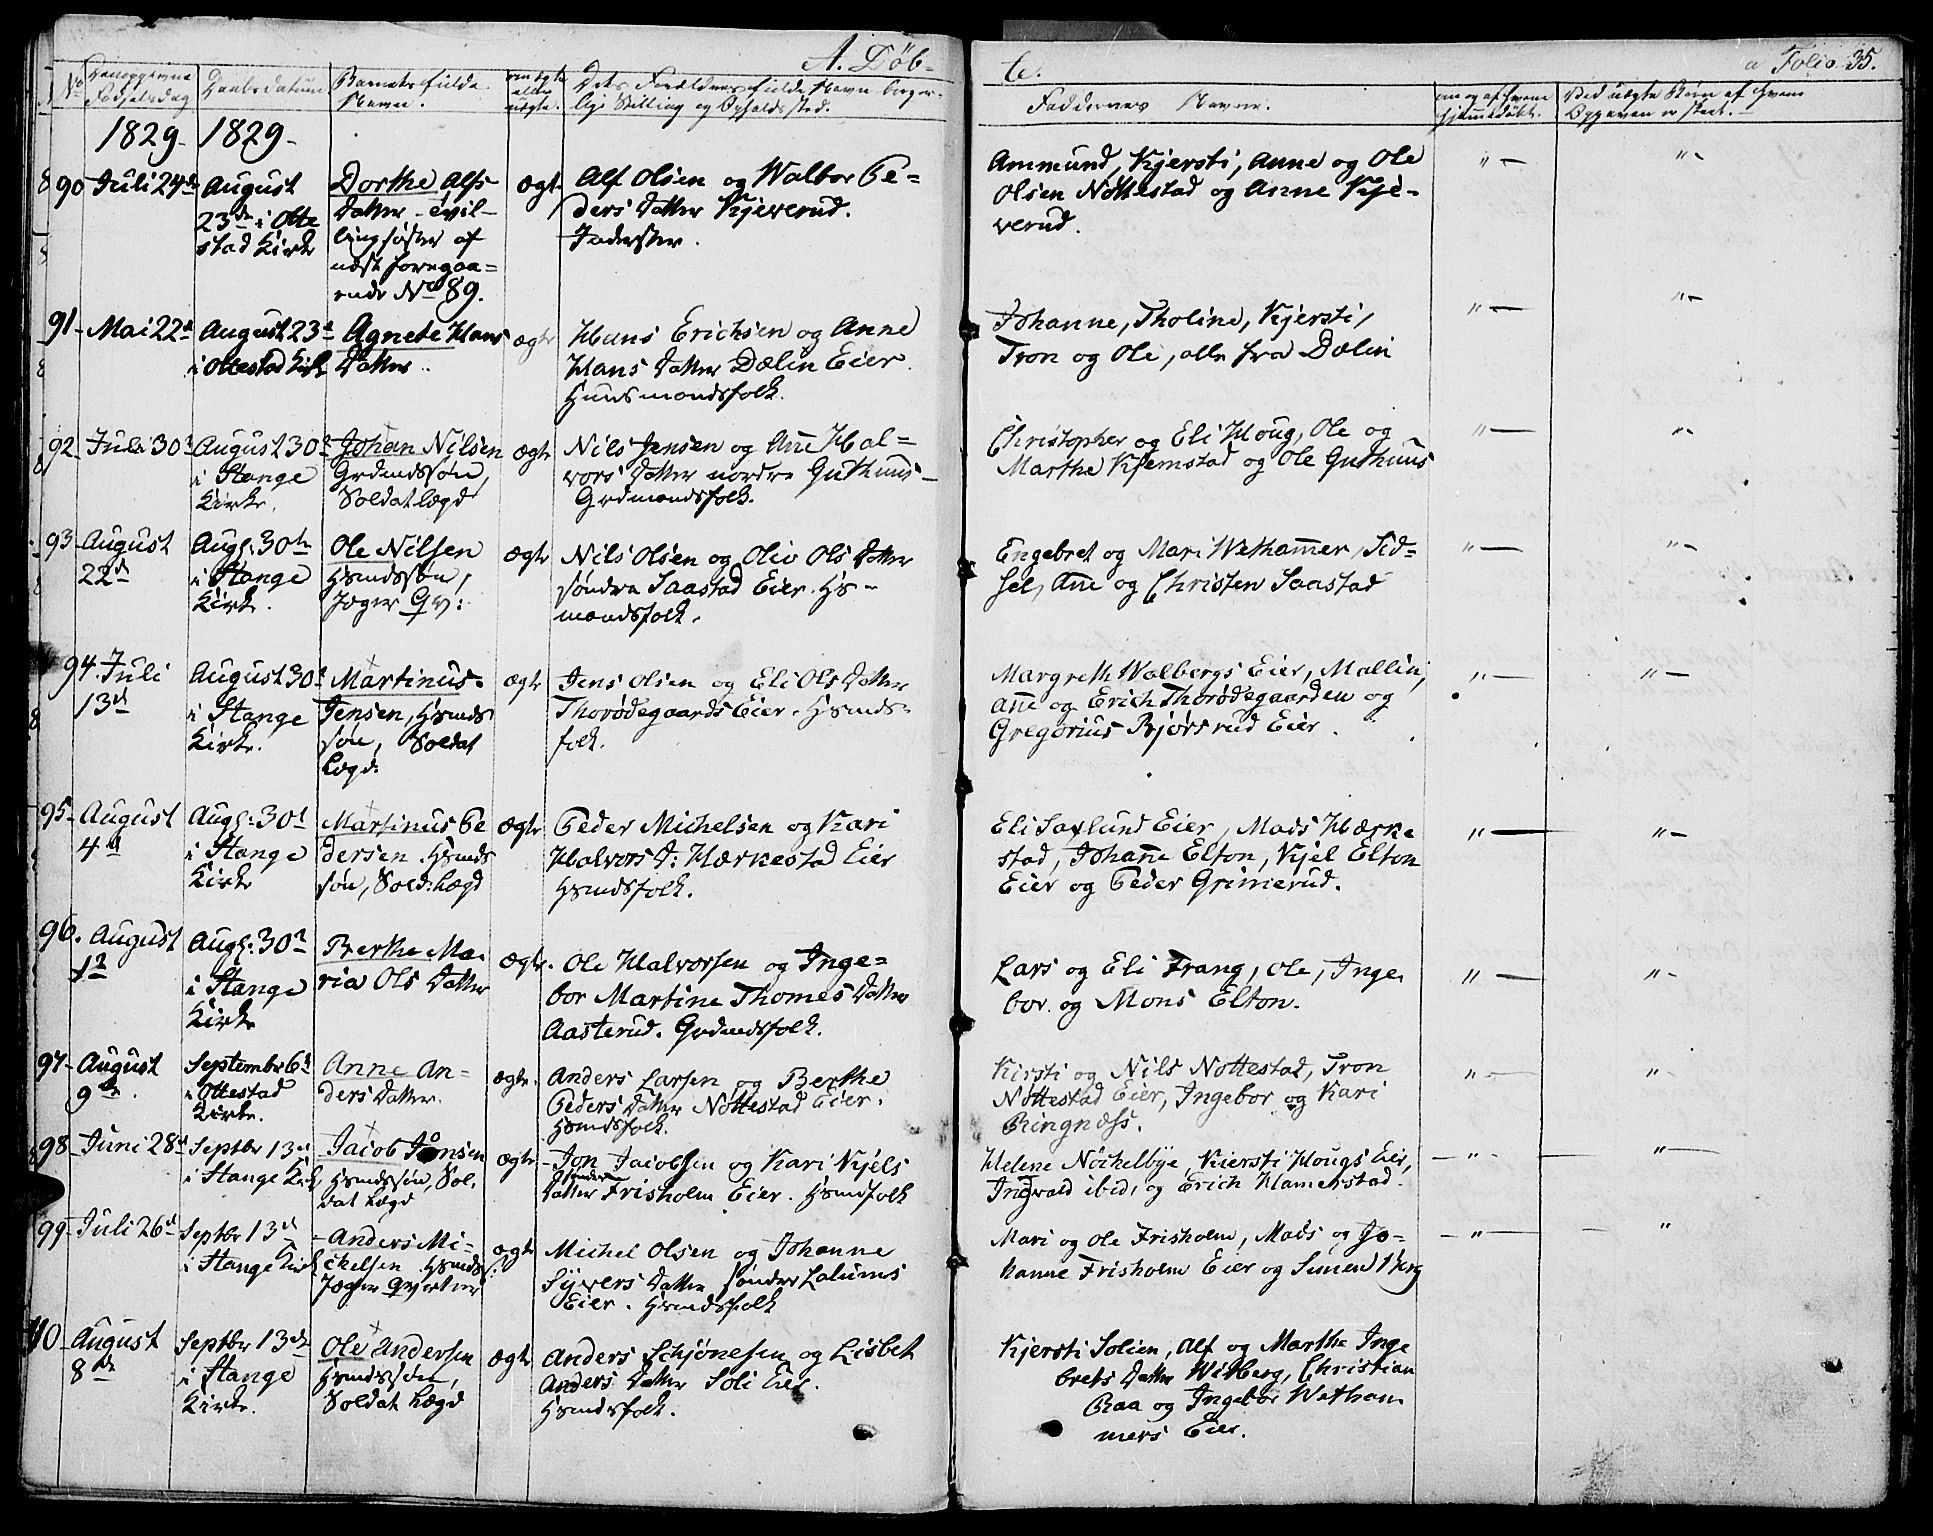 A. Döb-
te.
a Folio 35.
No
Fødselsdag
Daabsdatum
Barnets fulde
Navn.
om ægte
eller
uægte.
Dets Forældres fulde Navn borger-
lige Stilling og Opholdssted.
Faddernes Navne.
om og af hvem
hjemmedöbt.
Ved uægte Börn af hvem
Opgaven er skeet.
1829-
1829-
90
Juli 24de
August
23de i Otte
stad Kirke
Dorthe Alfs
Datter - tvil-
lingsöster af
næst foregaa=
ende No 89.
ægte
Alf Olsen og Walbor Pe=
ders Datter Kjeverud.
Inderster.
Ammund, Kjersti, Anne og Ole
Olsen Nöttestad og Anne Kje-
verud.
" -
" -
91-
Mai 22d
August 23d
i Ottestad Kirke
Agnete Hans
Datter.
ægte
Hans Erichsen og Anne
Hans Datter Dælin Eier.
Huusmandsfolk.
Johanne, Tholine, Kjersti,
Tron og Ole, alle fra Dælin
" -
" -
92-
Juli 30d
August 30d
i Stange
Kirke.
Johan Nilsen
Grdmdssön,
Soldatlægd
ægte
Nils Jensen og Ane Hal=
vors Datter nordre Guthuus-
Grdmandsfolk.
Christopher og Eli Houg, Ole og
Marthe Kjemstad og Ole Guthuus
" -
" -
93-
August
22d
Augs: 30te
i Stange
Kirke.
Ole Nilsen
Hsmdssön,
Jæger Qv:
ægte
Nils Olsen og Oliv Ols Datter
söndre Saastad Eier. Hs-
mandsfolk.
Engebret og Mari Wethamer, Sid=
sel, Ane og Christen Saastad
" -
" -
94.
Juli
13d
August 30d
i Stange
Kirke.
Martinus
Jensen, Hsmds
sön, Soldat
Lægd:
ægte
Jens Olsen og Eli Ols Datter
Thorödegaards Eier. Hsmds-
folk.
Margreth Walbergs Eier, Mallin,
Ane og Erich Thorödegaarden og
Gregorius Bjørsrud Eier.
" -
" -
95-
August
4d
Augs: 30d
i Stange
Kirke
Martinus Pe
dersen. Hsmds
sön, Sold: Lægd
ægte
Peder Michelsen og Kari
Halvors D: Hærkestad Eier
Hsmdsfolk.
Eli Saxlund Eier, Mads Hærke
stad, Johane Elton, Kjel Elton
Eier og Peder Grimerud.
" -
" -
96.
August
1d
Augs: 30d
i Stange
Kirke
Berthe Ma-
ria Ols Datter
ægte.
Ole Halvorsen og Inge=
bor Martine Thomes Datter
Aasterud. Grdmdsfolk.
Lars og Eli Frang, Ole, Inge-
bor. og Mons Elton.
" -
" -
97-
August
9de.
Septembr 6d
i Ottestad
Kirke.
Anne An-
ders Datter.
ægte.
Anders Larsen og Berthe
Peders Datter Nöttestad Eier.
Hsmdsfolk.
Kirsti og Nils Nöttestad, Tron
Nöttestad Eier, Ingebor og Kari
Ringnæss.
" -
" -
98-
Juni 28d
Septbr 13d
i Stange Kirk
Jacob Jonsen
Hsmdssön, Sol-
dat Lægd
ægte
Jon Jacobsen og Kari Kjels
Datter Frisholm Eier. Hsmdfolk
Helene Nöckelbye, Kiersti Hougs Eier,
Ingwald ibid, og Erich Hamerstad.
- " -
- " -
99-
Juli 26d
Septbr 13d
i Stange Kirk
Anders Mi-
chelsen. Hsmds
Jæger Qvarteer
ægte
Michel Olsen og Johanne
Syvers Datter söndre Lalums
Eier. Hsmdsfolk
Mari og Ole Frisholm, Mads og Jo-
hanne Frisholm Eier og Simen
- " -
- "
August
8de
Septbr 13de
i Stange
Kirke.
Ole Andersen
Hsmdssön,
Soldat Lægd
ægte
Anders Schjönesen og Lisbet
Anders Datter Soli Eier.
Hsmdsfolk.
Kjersti Solien, Alf og Marthe Inge
brets Datter Witberg, Christian
Raa og Ingebor Wetham
mers Eier.